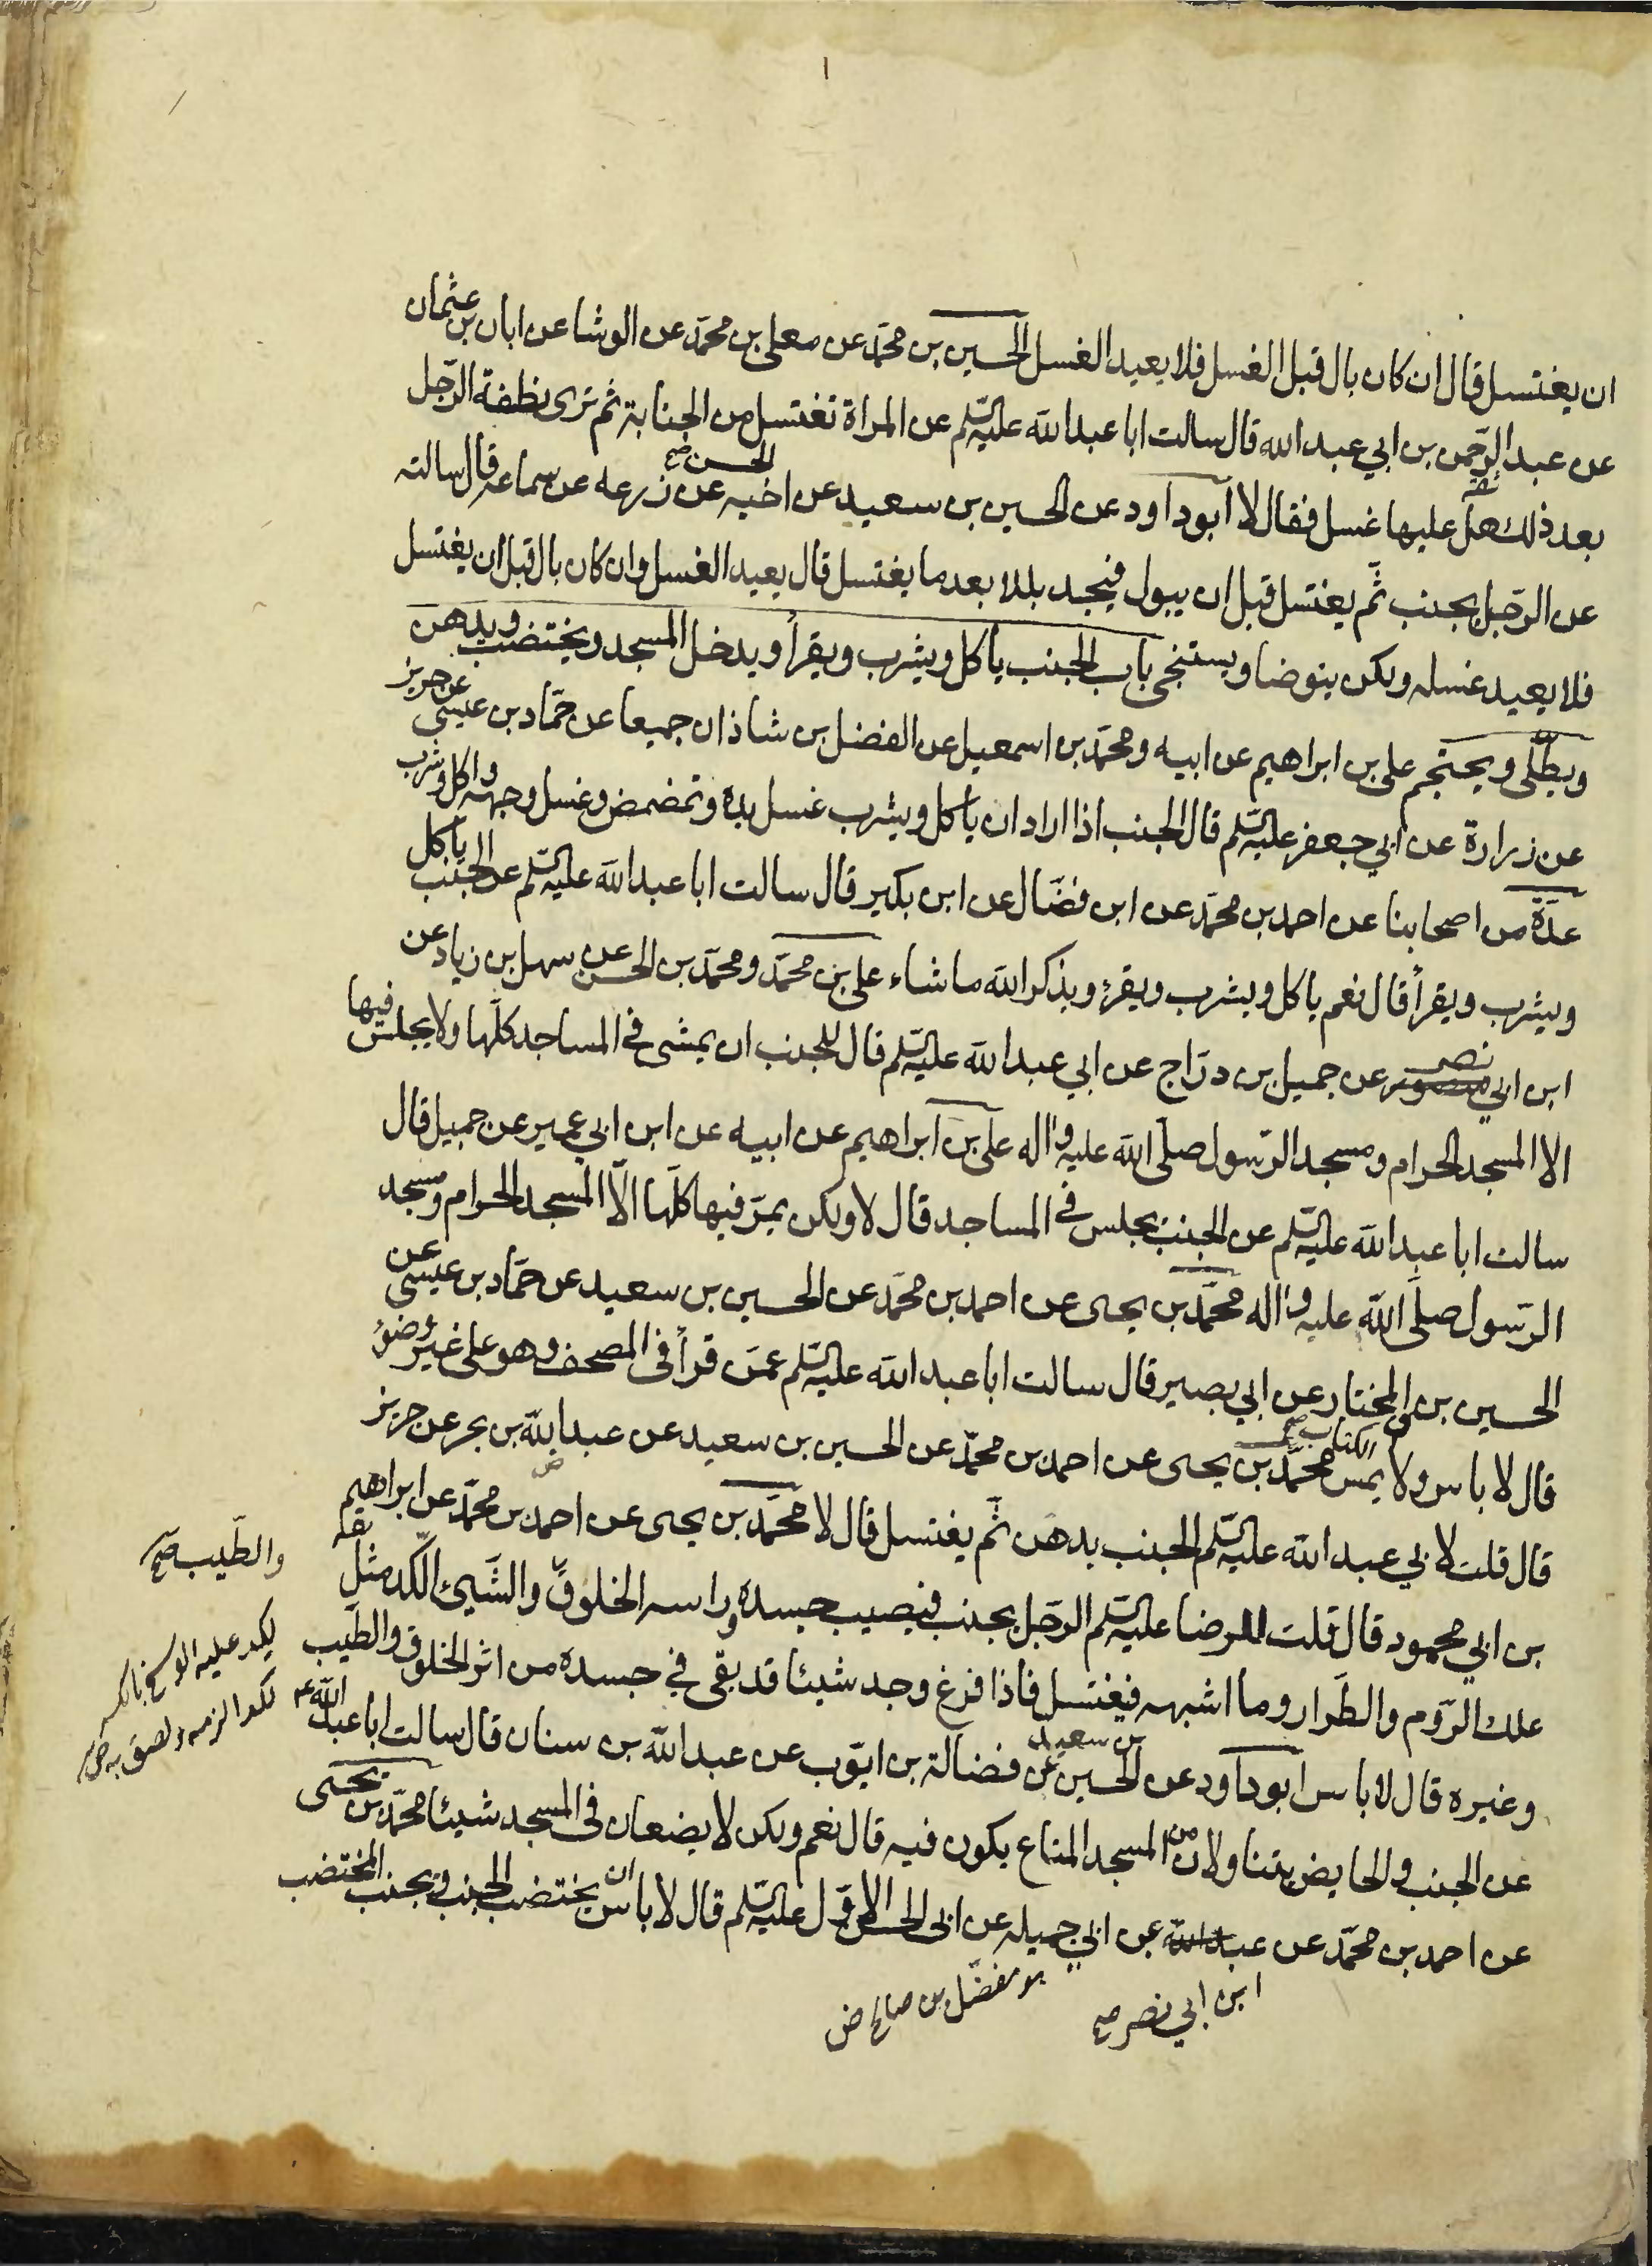 ان يغتسل قال ان كان بال قبل الغسل فلا يعيد الغسل الحسين بن محمّد عن معلى بن محمّد عن الوشا عن ابان بن عثمان
عن عبد الرّحمن بن ابي عبد الله قال سالت ابا عبد الله عليه السّلم عن المراة تغتسل من الجنابة ثم ترى نطفة الرّجل
بعد ذلك هل عليها غسل فقال لا ابو داود عن الحسين بن سعيد عن اخيه الحسن صح عن زرعه عن سماعه قال سالته
عن الرّجل يجنب ثمّ يغتسل قبل ان يبول فيجد بللا بعد ما يغتسل قال يعيد الغسل وان كان بال قبل ان يغتسل
فلا يعيد غسله ولكن يتوضا ويستنجى باب الجنب ياكل ويشرب ويقرأ ويدخل المسجد ويختضب ويدهن
ويطّلى ويحتجم على بن ابراهيم عن ابيه ومحمّد بن اسمعيل عن الفضل بن شاذان جميعا عن حمّاد بن عيسى عن حريز
عن زرارة عن ابي جعفر عليه السّلم قال الجنب اذا اراد ان ياكل ويشرب غسل يده وتمضمض وغسل وجهه واكل وشرب
عدّة من اصحابنا عن احمد بن محمّد عن ابن فضّال عن ابن بكير قال سالت ابا عبد الله عليه السّلم عن الجنب ياكل
ويشرب ويقرأ قال نعم ياكل ويشرب ويقرء ويذكر الله ما شاء على بن محمّد ومحمّد بن الحسن عن سهل بن زياد عن
ابن ابي نصر عن جميل بن درّاج عن ابي عبد الله عليه السّلم قال للجنب ان يمشى في المساجد كلّها ولا يجلس فيها
الا المسجد الحرام ومسجد الرّسول صلّى الله عليه واله على بن ابراهيم عن ابيه عن ابن ابي عمير عن جميل قال
سالت ابا عبد الله عليه السّلم عن الجنب يجلس في المساجد قال لا ولكن يمرّ فيها كلّها الّا المسجد الحرام ومسجد
الرّسول صلّى الله عليه واله محمّد بن يحيى عن احمد بن محمّد عن الحسين بن سعيد عن حمّاد بن عيسى عن
الحسين بن المختار عن ابي بصير قال سالت ابا عبد الله عليه السّلم عمّن قرأ فى المصحف وهو على غير وضوء
قال لا باس ولا يمس الكتاب صح محمّد بن يحيى عن احمد بن محمّد عن الحسين بن سعيد عن عبد الله بن بحر عن حريز
قال قلت لابي عبد الله عليه السّلم الجنب يدهن ثمّ يغتسل قال لا محمّد بن يحيى عن احمد بن محمّد عن ابراهيم
بن ابي محمود قال قلت للرضا عليه السّلم الرجل يجنب فيصيب جسده وراسه الخلوق والشّيئ اللّكد مثل
علك الرّوم والطّرار وما اشبهه فيغتسل فاذا فرغ وجد شيئا قد بقى في جسده من اثر الخلوق والطّيب
وغيره قال لا باس ابو داود عن الحسين بن سعيد عن فضالة بن ايّوب عن عبد الله بن سنان قال سالت ابا عبد الله
عن الجنب والحايض يتناولان من المسجد المتاع يكون فيه قال نعم ولكن لا يضعان فى المسجد شيئا محمّد بن يحيى
عن احمد بن محمّد عن عبد الله عن ابي جميله عن ابى الحسن الاوّل عليه السّلم قال لا باس ان يختضب الجنب ويجنب المختضب
ابن ابي نصر صح
هو مفضّل بن صالح ض
والطّيب صح
لكد عليه الوسخ بالكسر